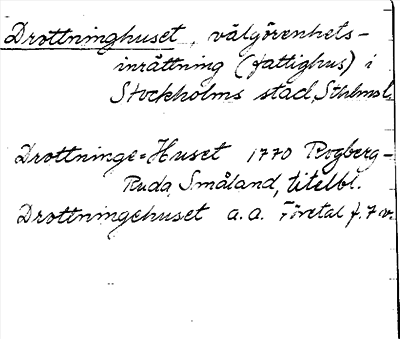 Drottninghuset, välgörenhets-
inrättning (fattighus) i
Stockholms stad, Sthlms l.
Drottninge-Huset 1770 Rogberg-
Ruda, Småland, titelbl.
Drottningehuset a.a. Företal f. 7 v.